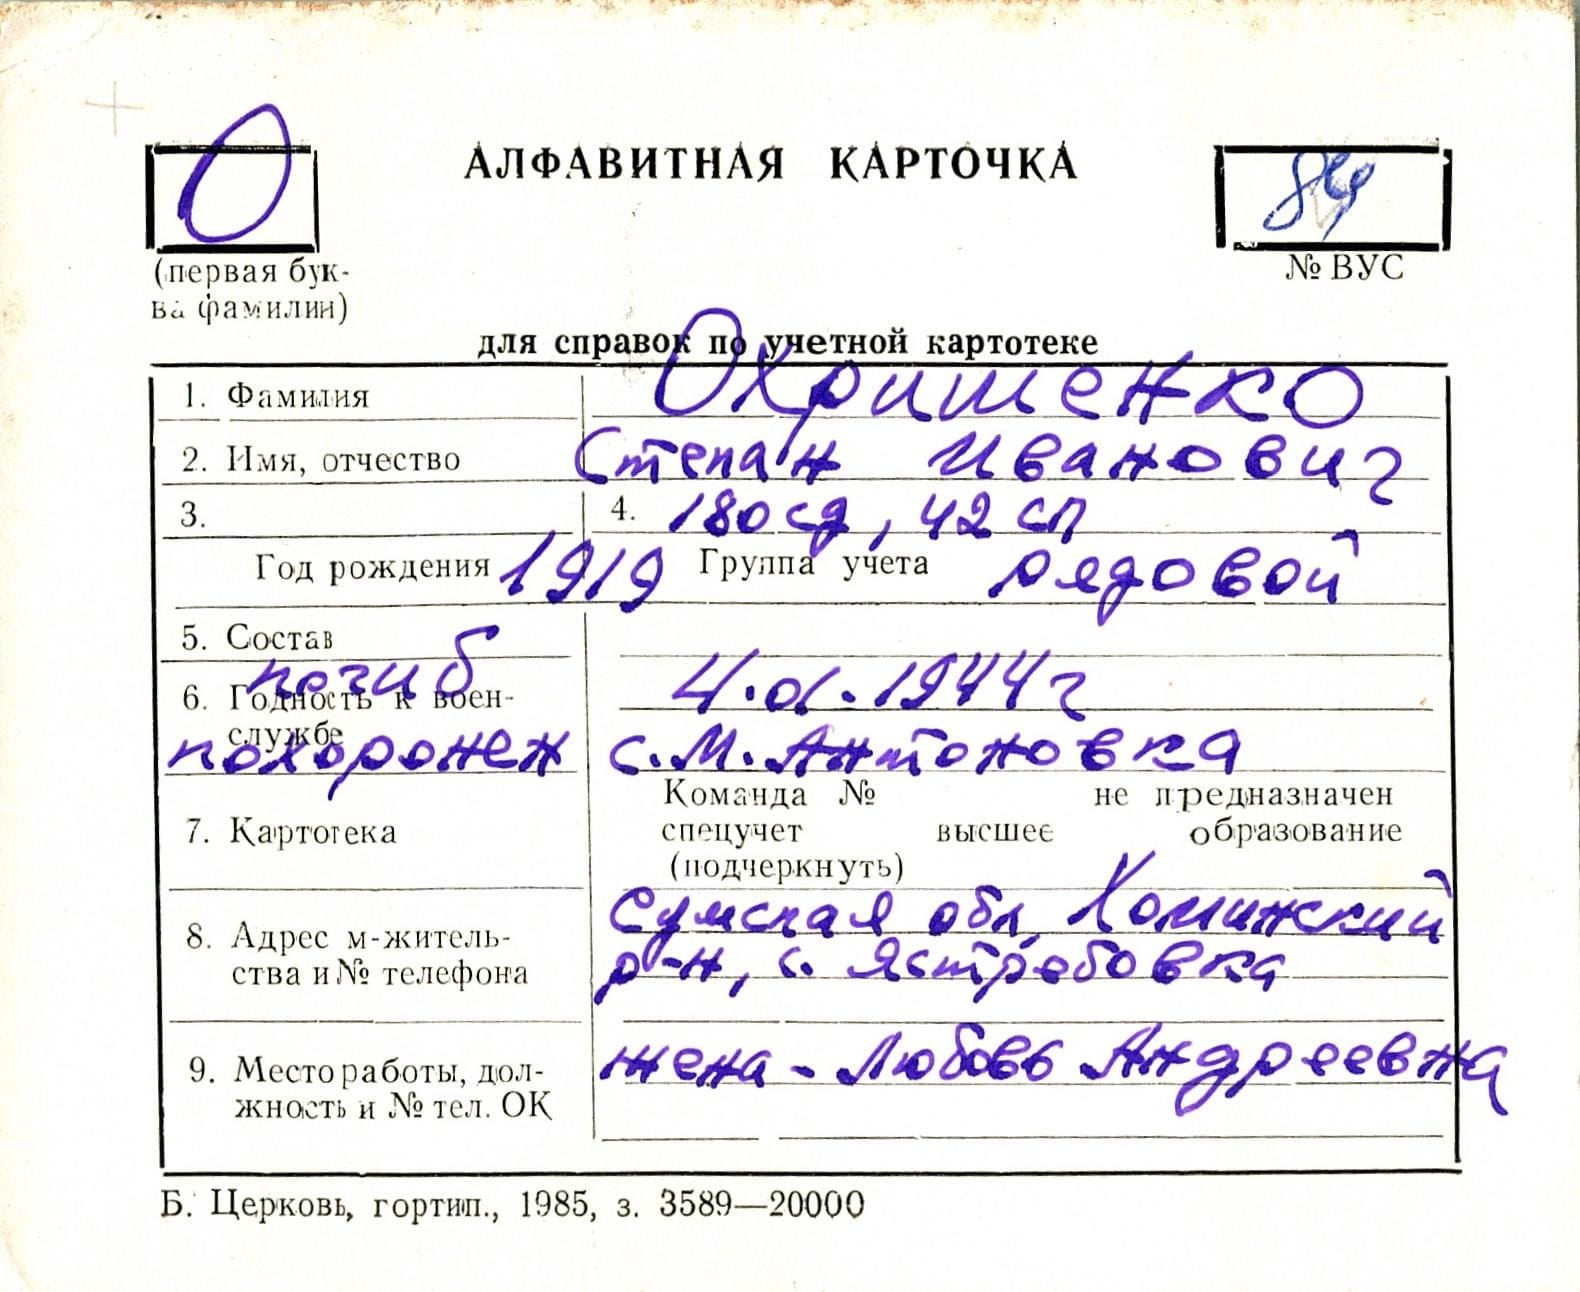 О
АЛФАВИТНАЯ КАРТОЧКА
84
(первая бук-
ва фамилии)
№ ВУС
для справок по учетной картотеке
1. Фамилия Охришенко
2. Имя, отчество Степан Иванович
3. 4. 180 сд, 42 сп
Год рождения 1919 Группа учета рядовой
5. Состав
погиб 4.01.1944 г
6. Годность к воен-
службе
похоронен с. М. Антоновка
Команда № не предназначен
7. Картотека спецучет высшее образование
(подчеркнуть)
Сумская обл, Хоминский
8. Адрес м-житель-
р-н, с. Ястребовка
ства и № телефона
жена - Любовь Андреевна
9. Место работы, дол-
жность и № тел. ОК
Б. Церковь, гортип., 1985, з. 3589—20000